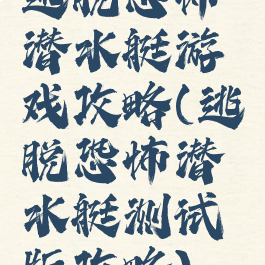 逃脱恐怖
潜水艇游
戏攻略(逃
脱恐怖潜
水艇测试
版攻略)